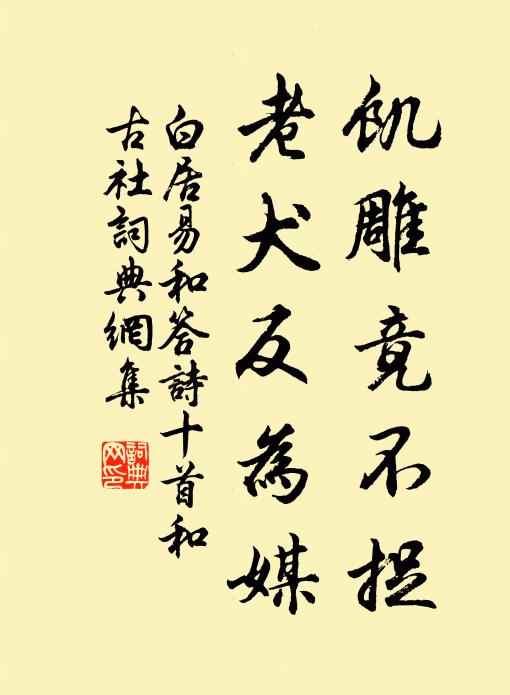 飢雕竟不捉
老犬反為媒
白居易和答詩十首和
古社詞典網集
詞典
网印